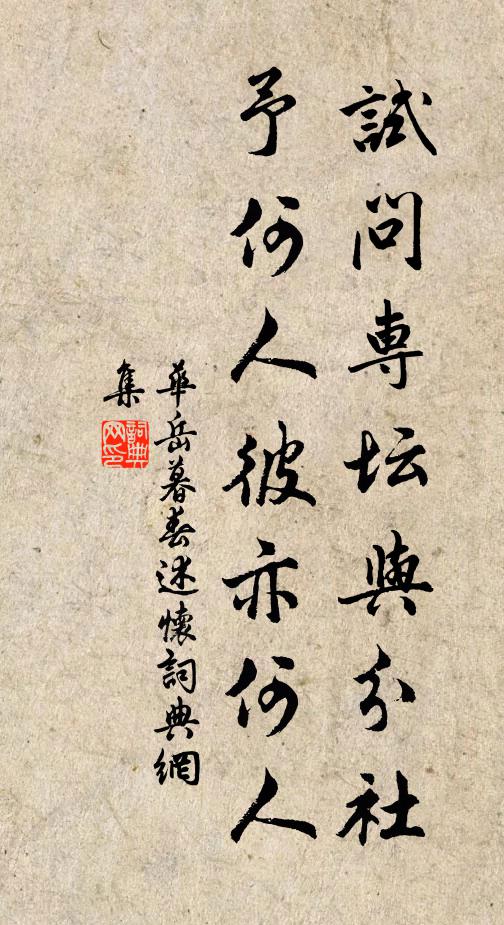 試問専坛與分社
予何人彼亦何人
華岳暮春述懷詞典網
集
詞典
网印